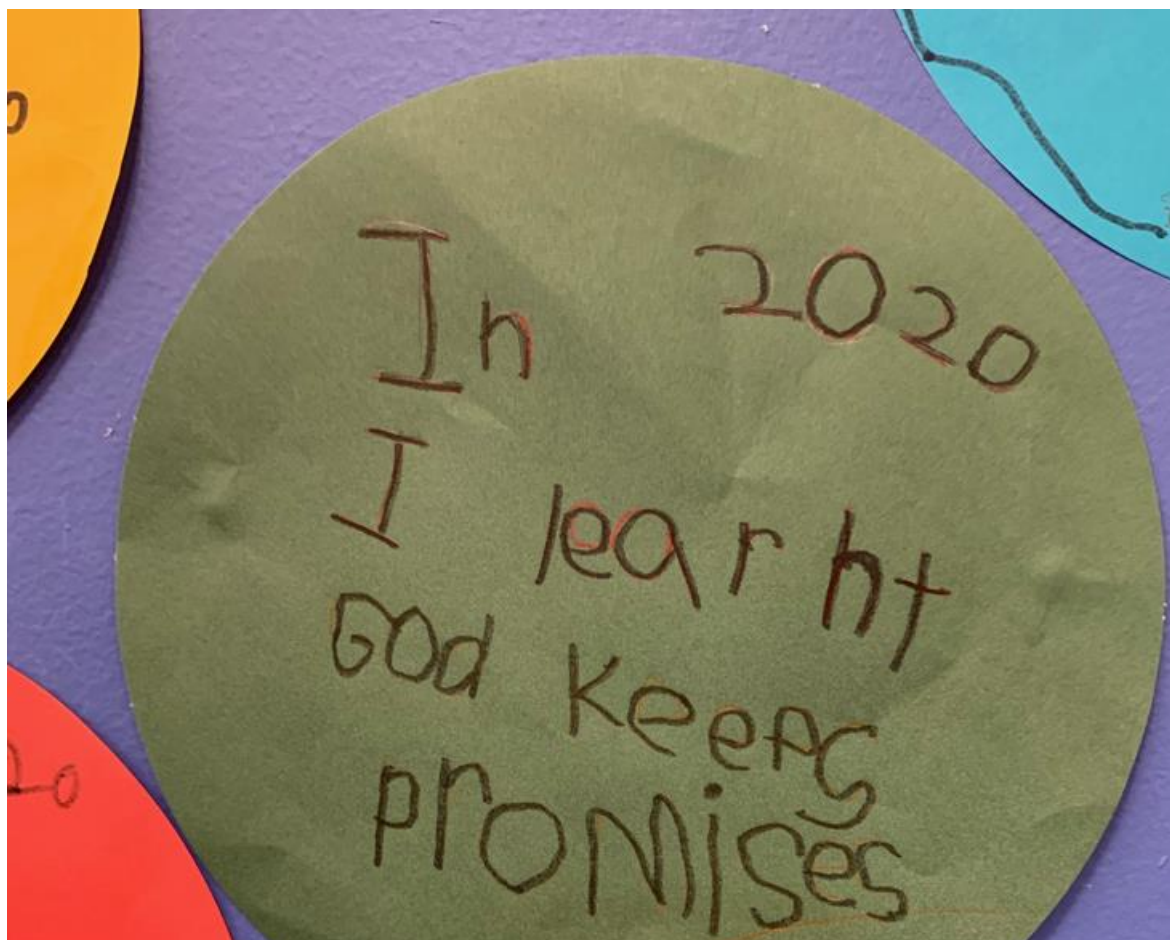 In 2020
I learnt
God keeps
promises
20